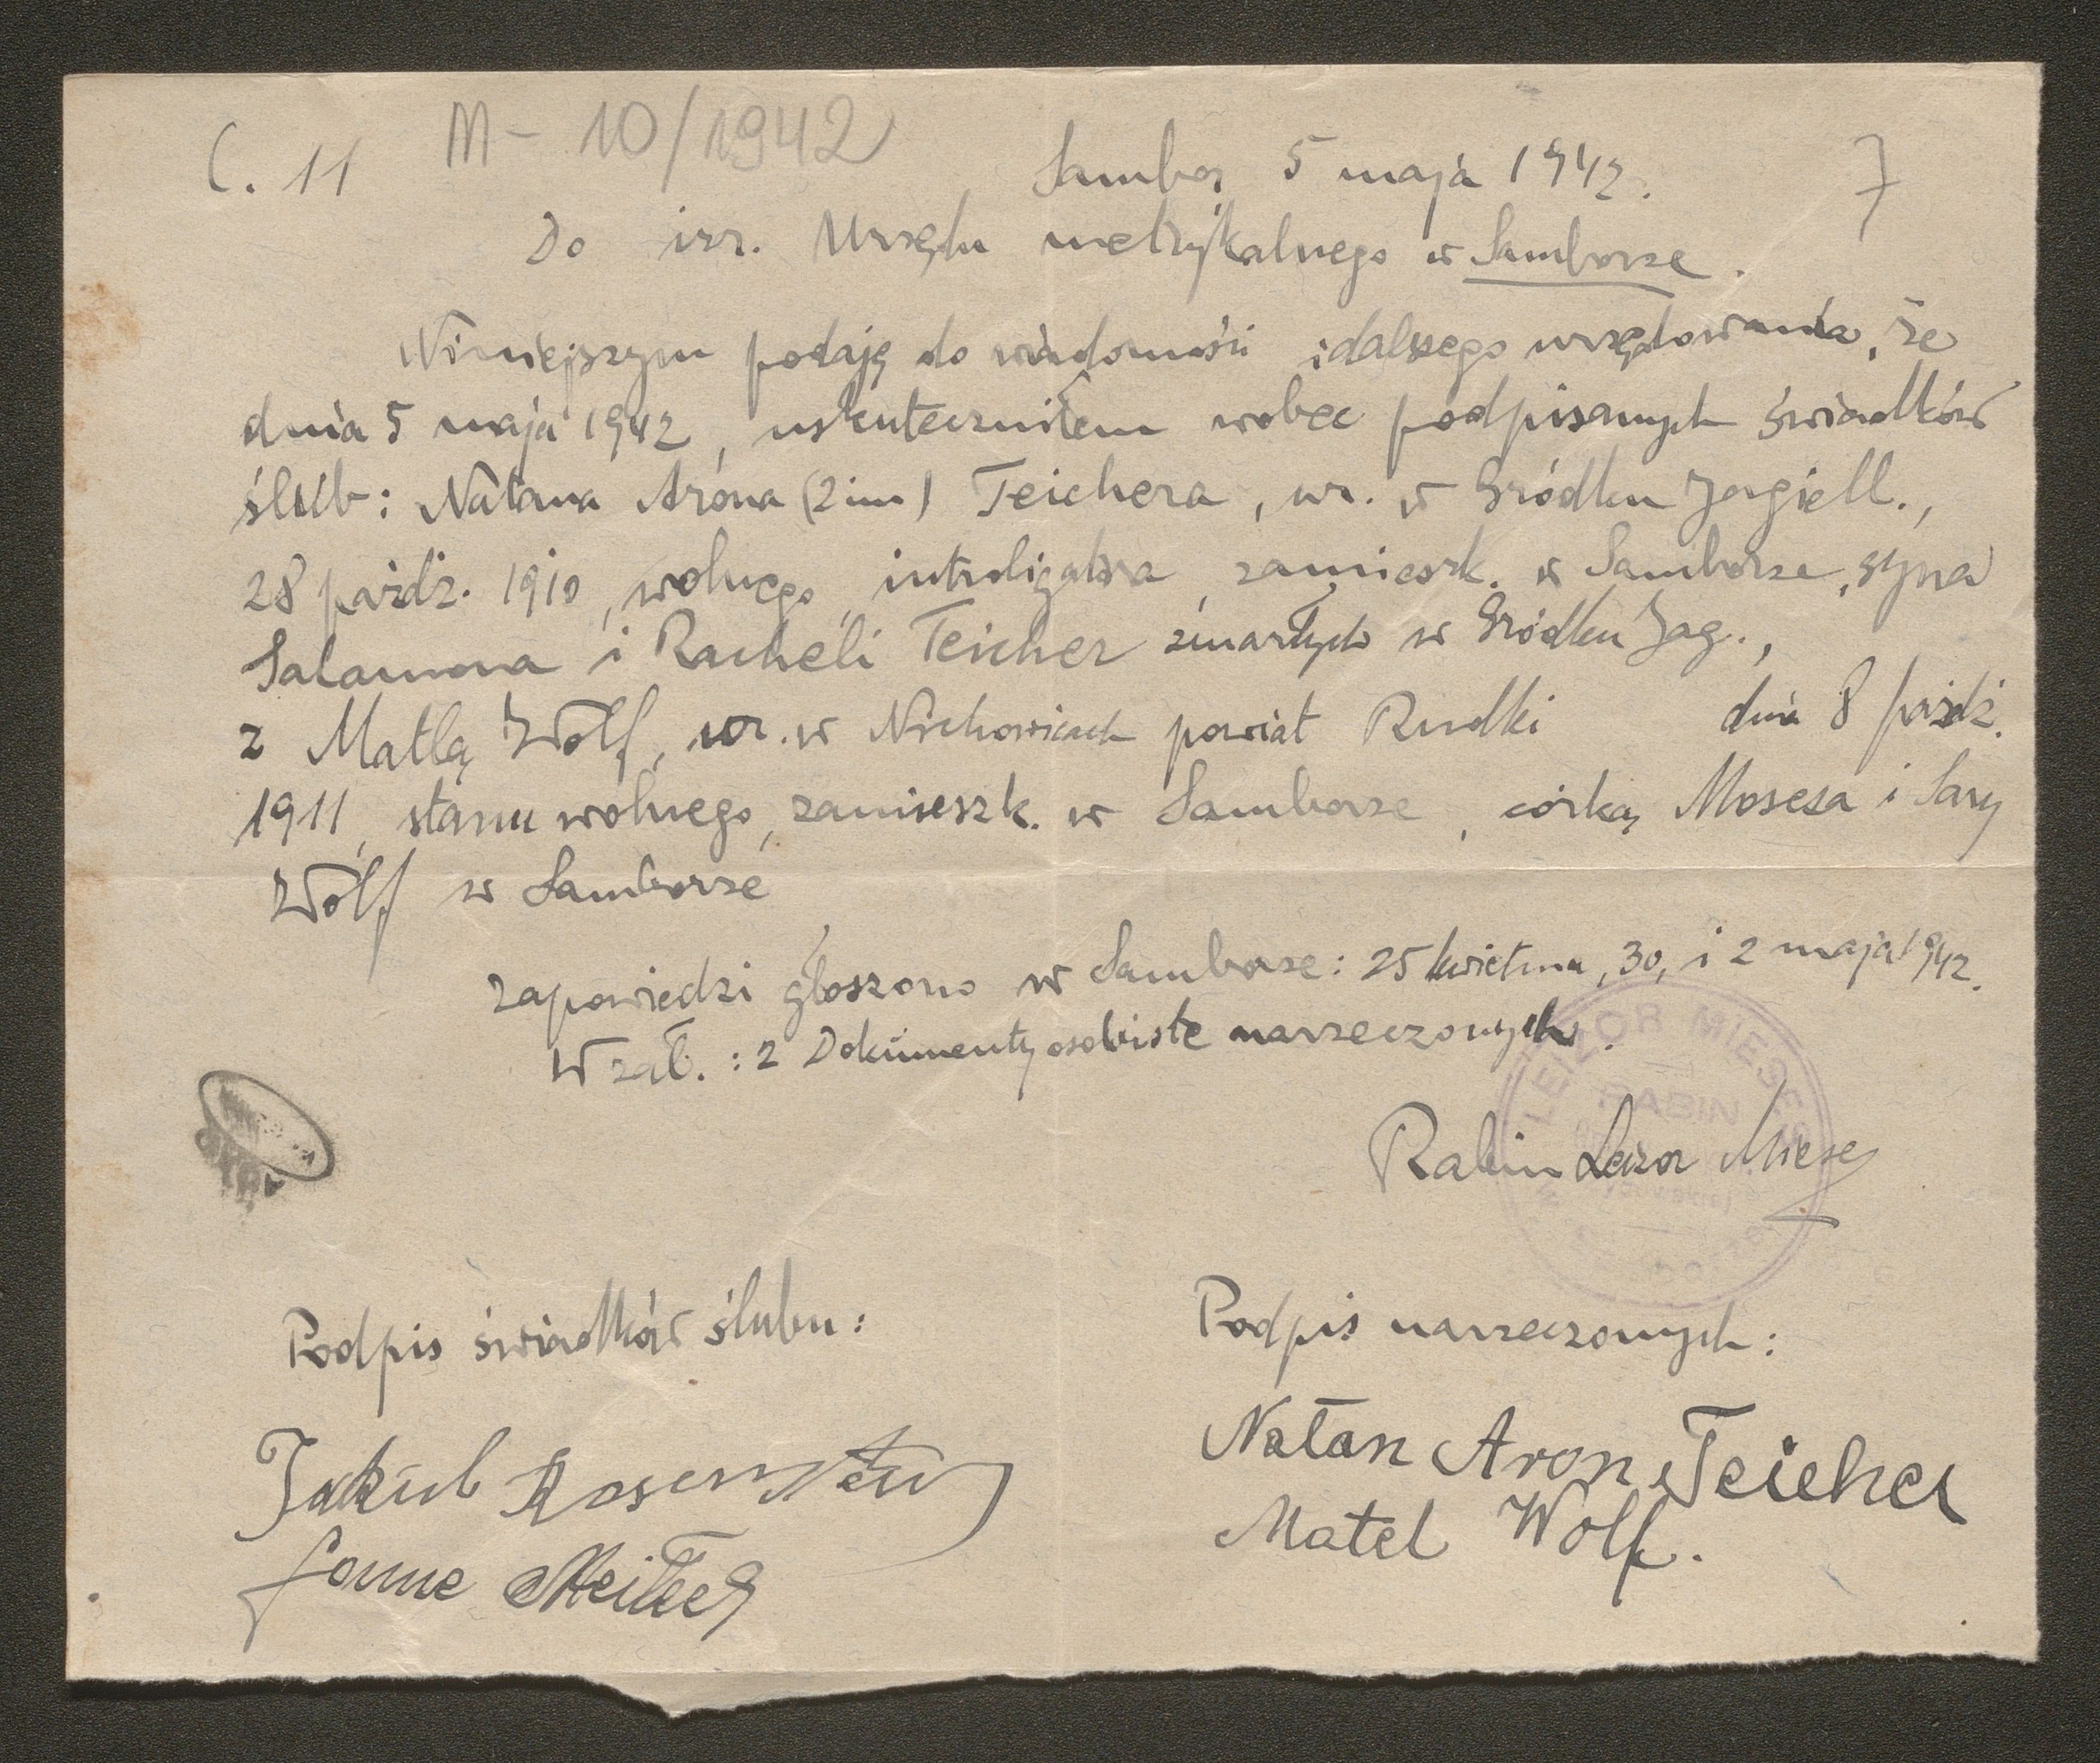 C. 11 M - 10/1942
Sambor 5 maja 1942. 7
Do izr. Urzędu metrykalnego w Samborze.
Niniejszym podaję do wiadomości i dalszego urzędowania, że
dnia 5 maja 1942, uskuteczniłem wobec podpisanych świadków
ślub: Natana Arona (2 im) Teichera, ur. w Gródku Jagiell.,
28 paźdz. 1910, wolnego, introligatora, zamieszk. w Samborze, syna
Salamona i Racheli Teicher zmarłych w Gródku Jag.,
z Matlą Wolf, ur. w powiat Rudki dnia 8 paźdź.
1911, stanu wolnego, zamieszk. w Samborze, córką Mosesa i Sary
Wolf w Samborze
zapowiedzi głoszono w Samborze: 25 kwietnia, 30, i 2 maja 1942.
W zał.: 2 Dokumenty osobiste narzeczonych.
LEIZOR MIESES
RABIN
Rabin Leizor Mieses
Podpis świadków ślubu:
Podpis narzeczonych:
Jakub
Natan Aron Teicher
Matel Wolf.